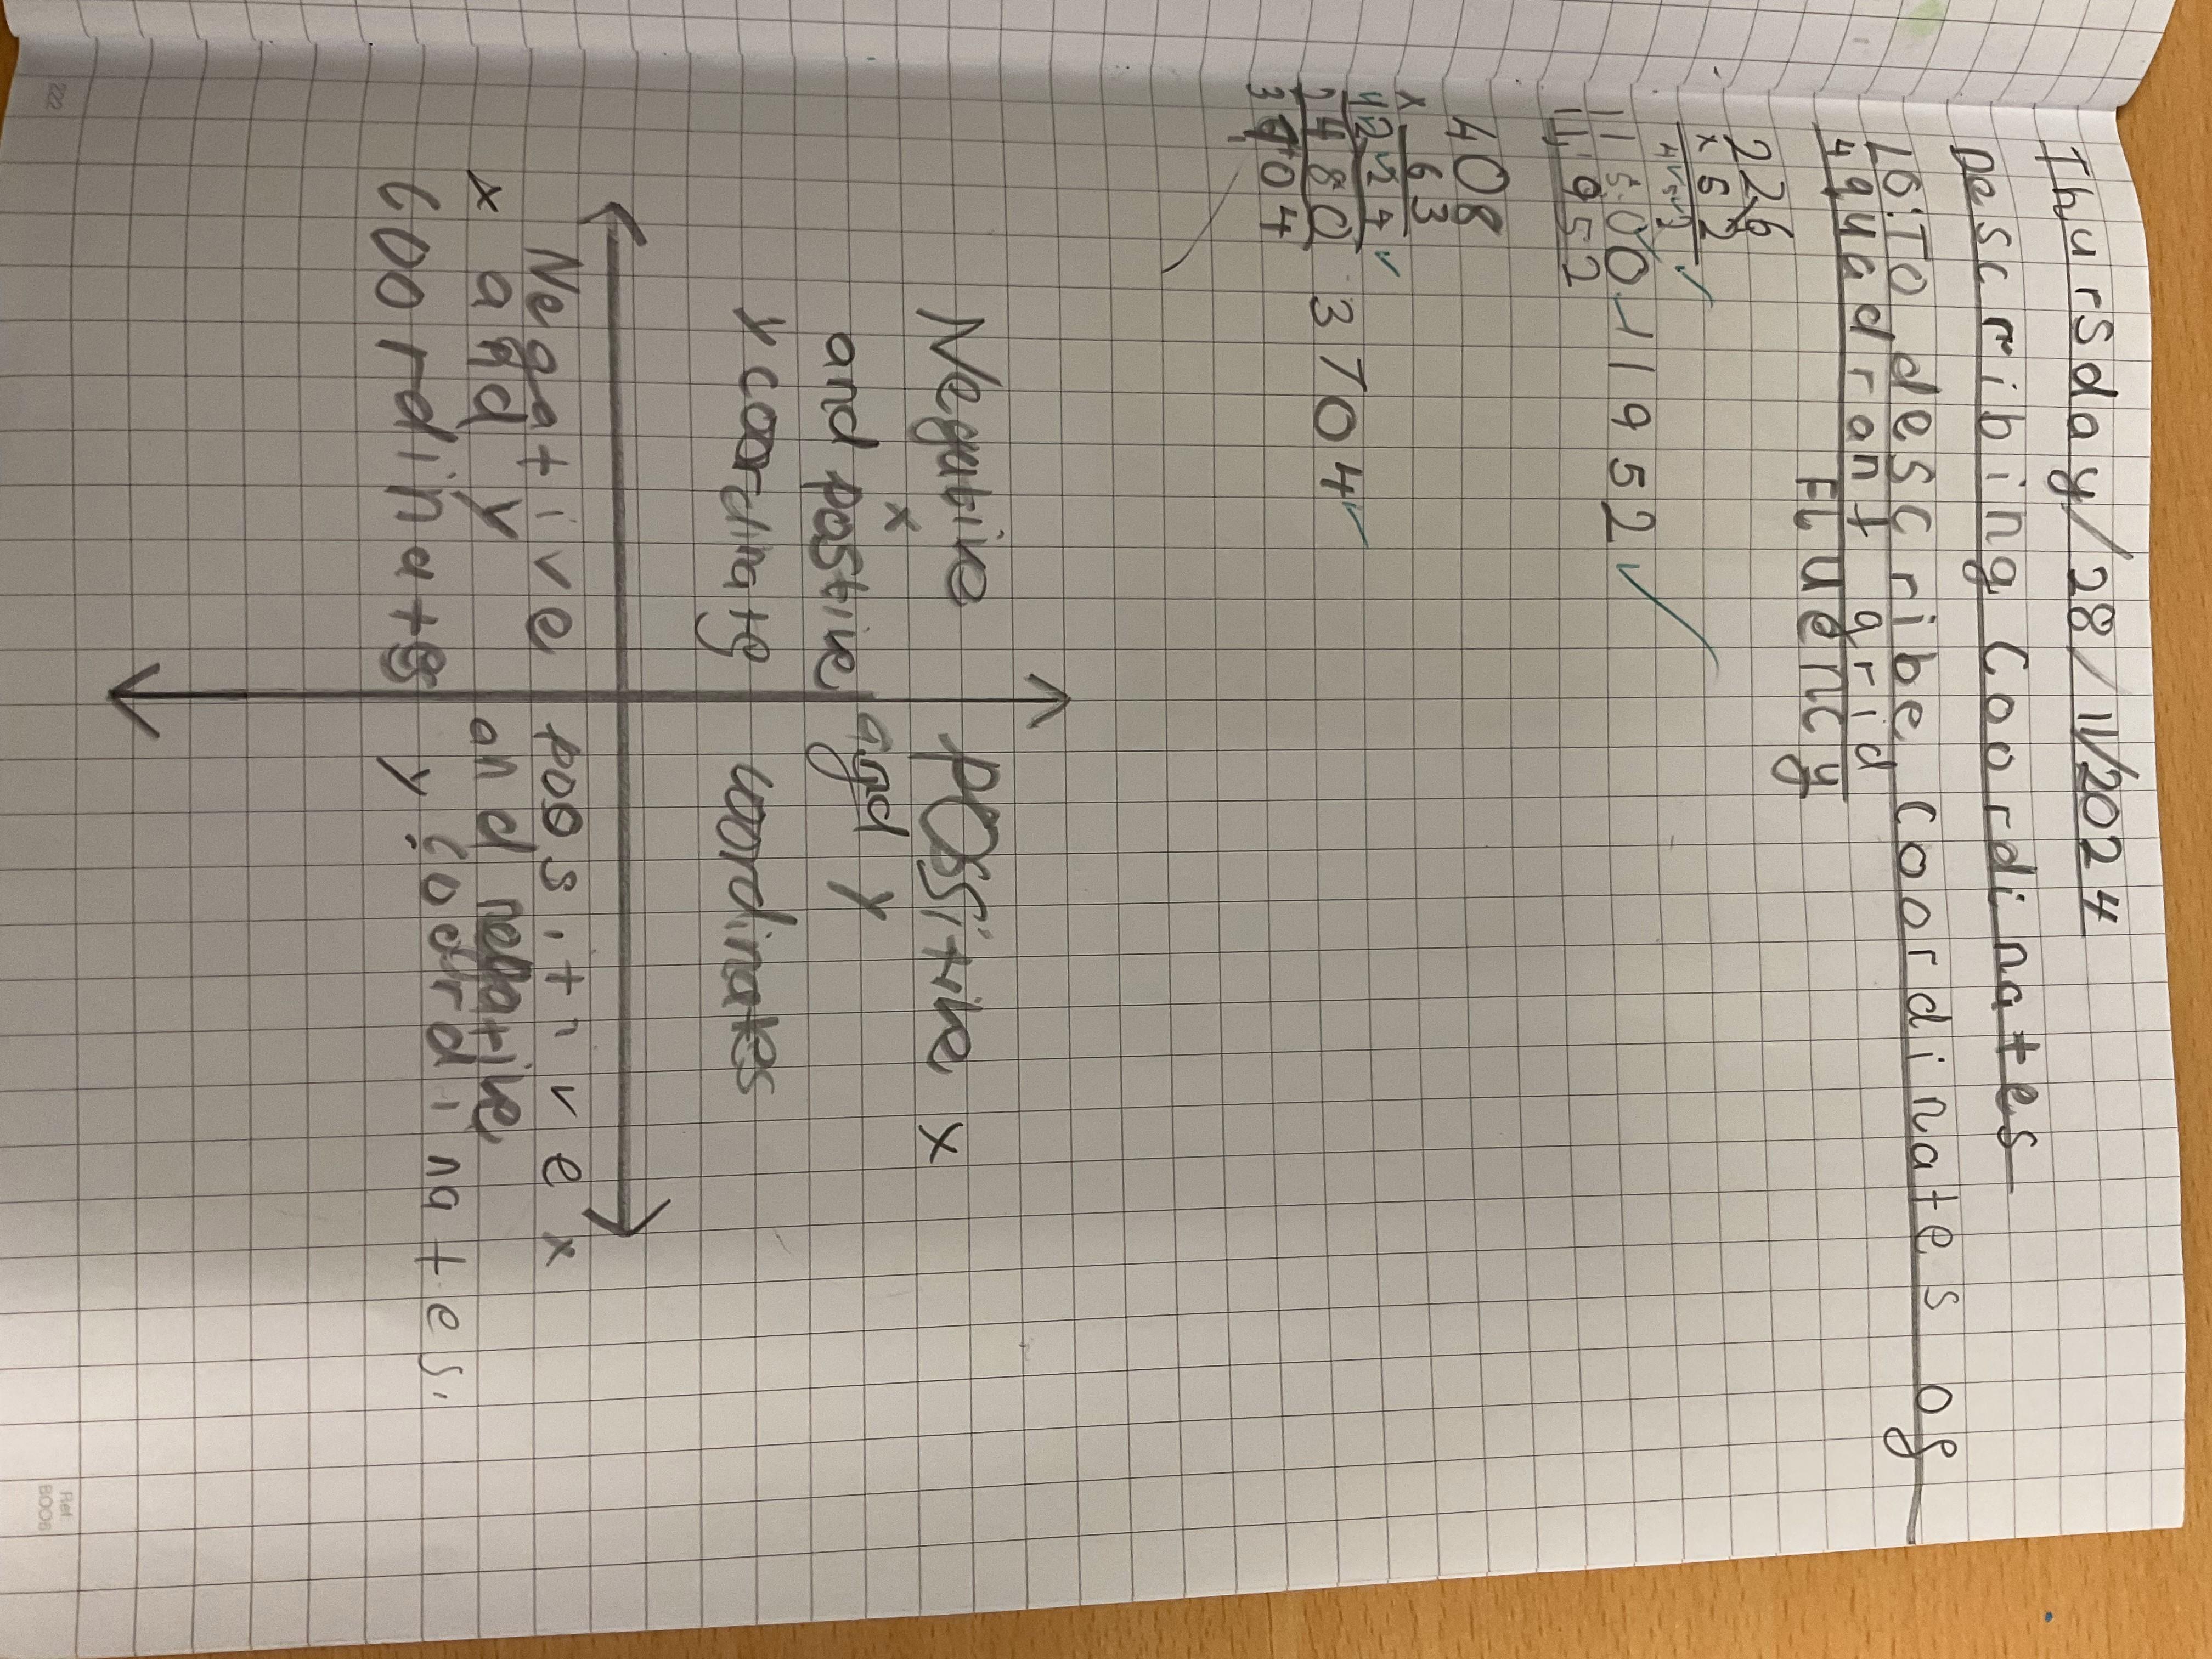 Thursday/28/11/2024
Describing Coordinates
LO: To describe Coordinates of
4 quadrant grid
Fluency
226
x 52
452
11300 11952
11952
408
x 63
1224
24480 3704
3704
Negutive
x
and postive
y coordinate
Possitive x
and y
coordinates
Negative
x and y
coordinates
positive x
and negative
y coordinates.
222
Ref:
B006